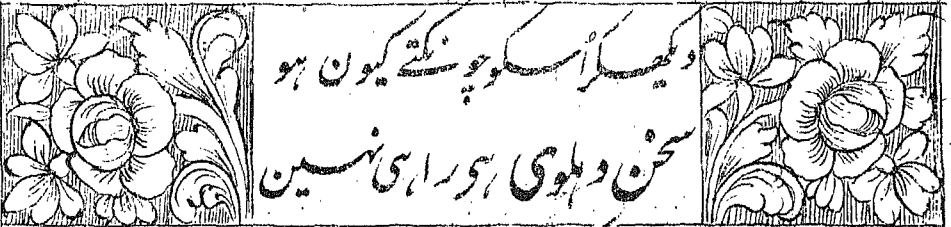 دیکھکر اُسکو چونکتے کیون ہو
سخن دہلوی ہی راہی نہین